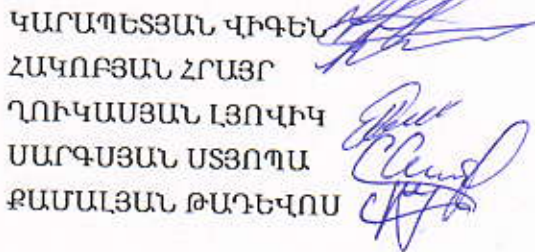 ԿԱՐԱՊԵՏՅԱՆ ՎԻԳԵՆ
ՀԱԿՈԲՅԱՆ ՀՐԱՅՐ
ՂՈՒԿԱՍՅԱՆ ԼՅՈՎԻԿ
ՍԱՐԳՍՅԱՆ ՍՏՅՈՊԱ
ՔԱՄԱԼՅԱՆ ԹԱԴԵՎՈՍ